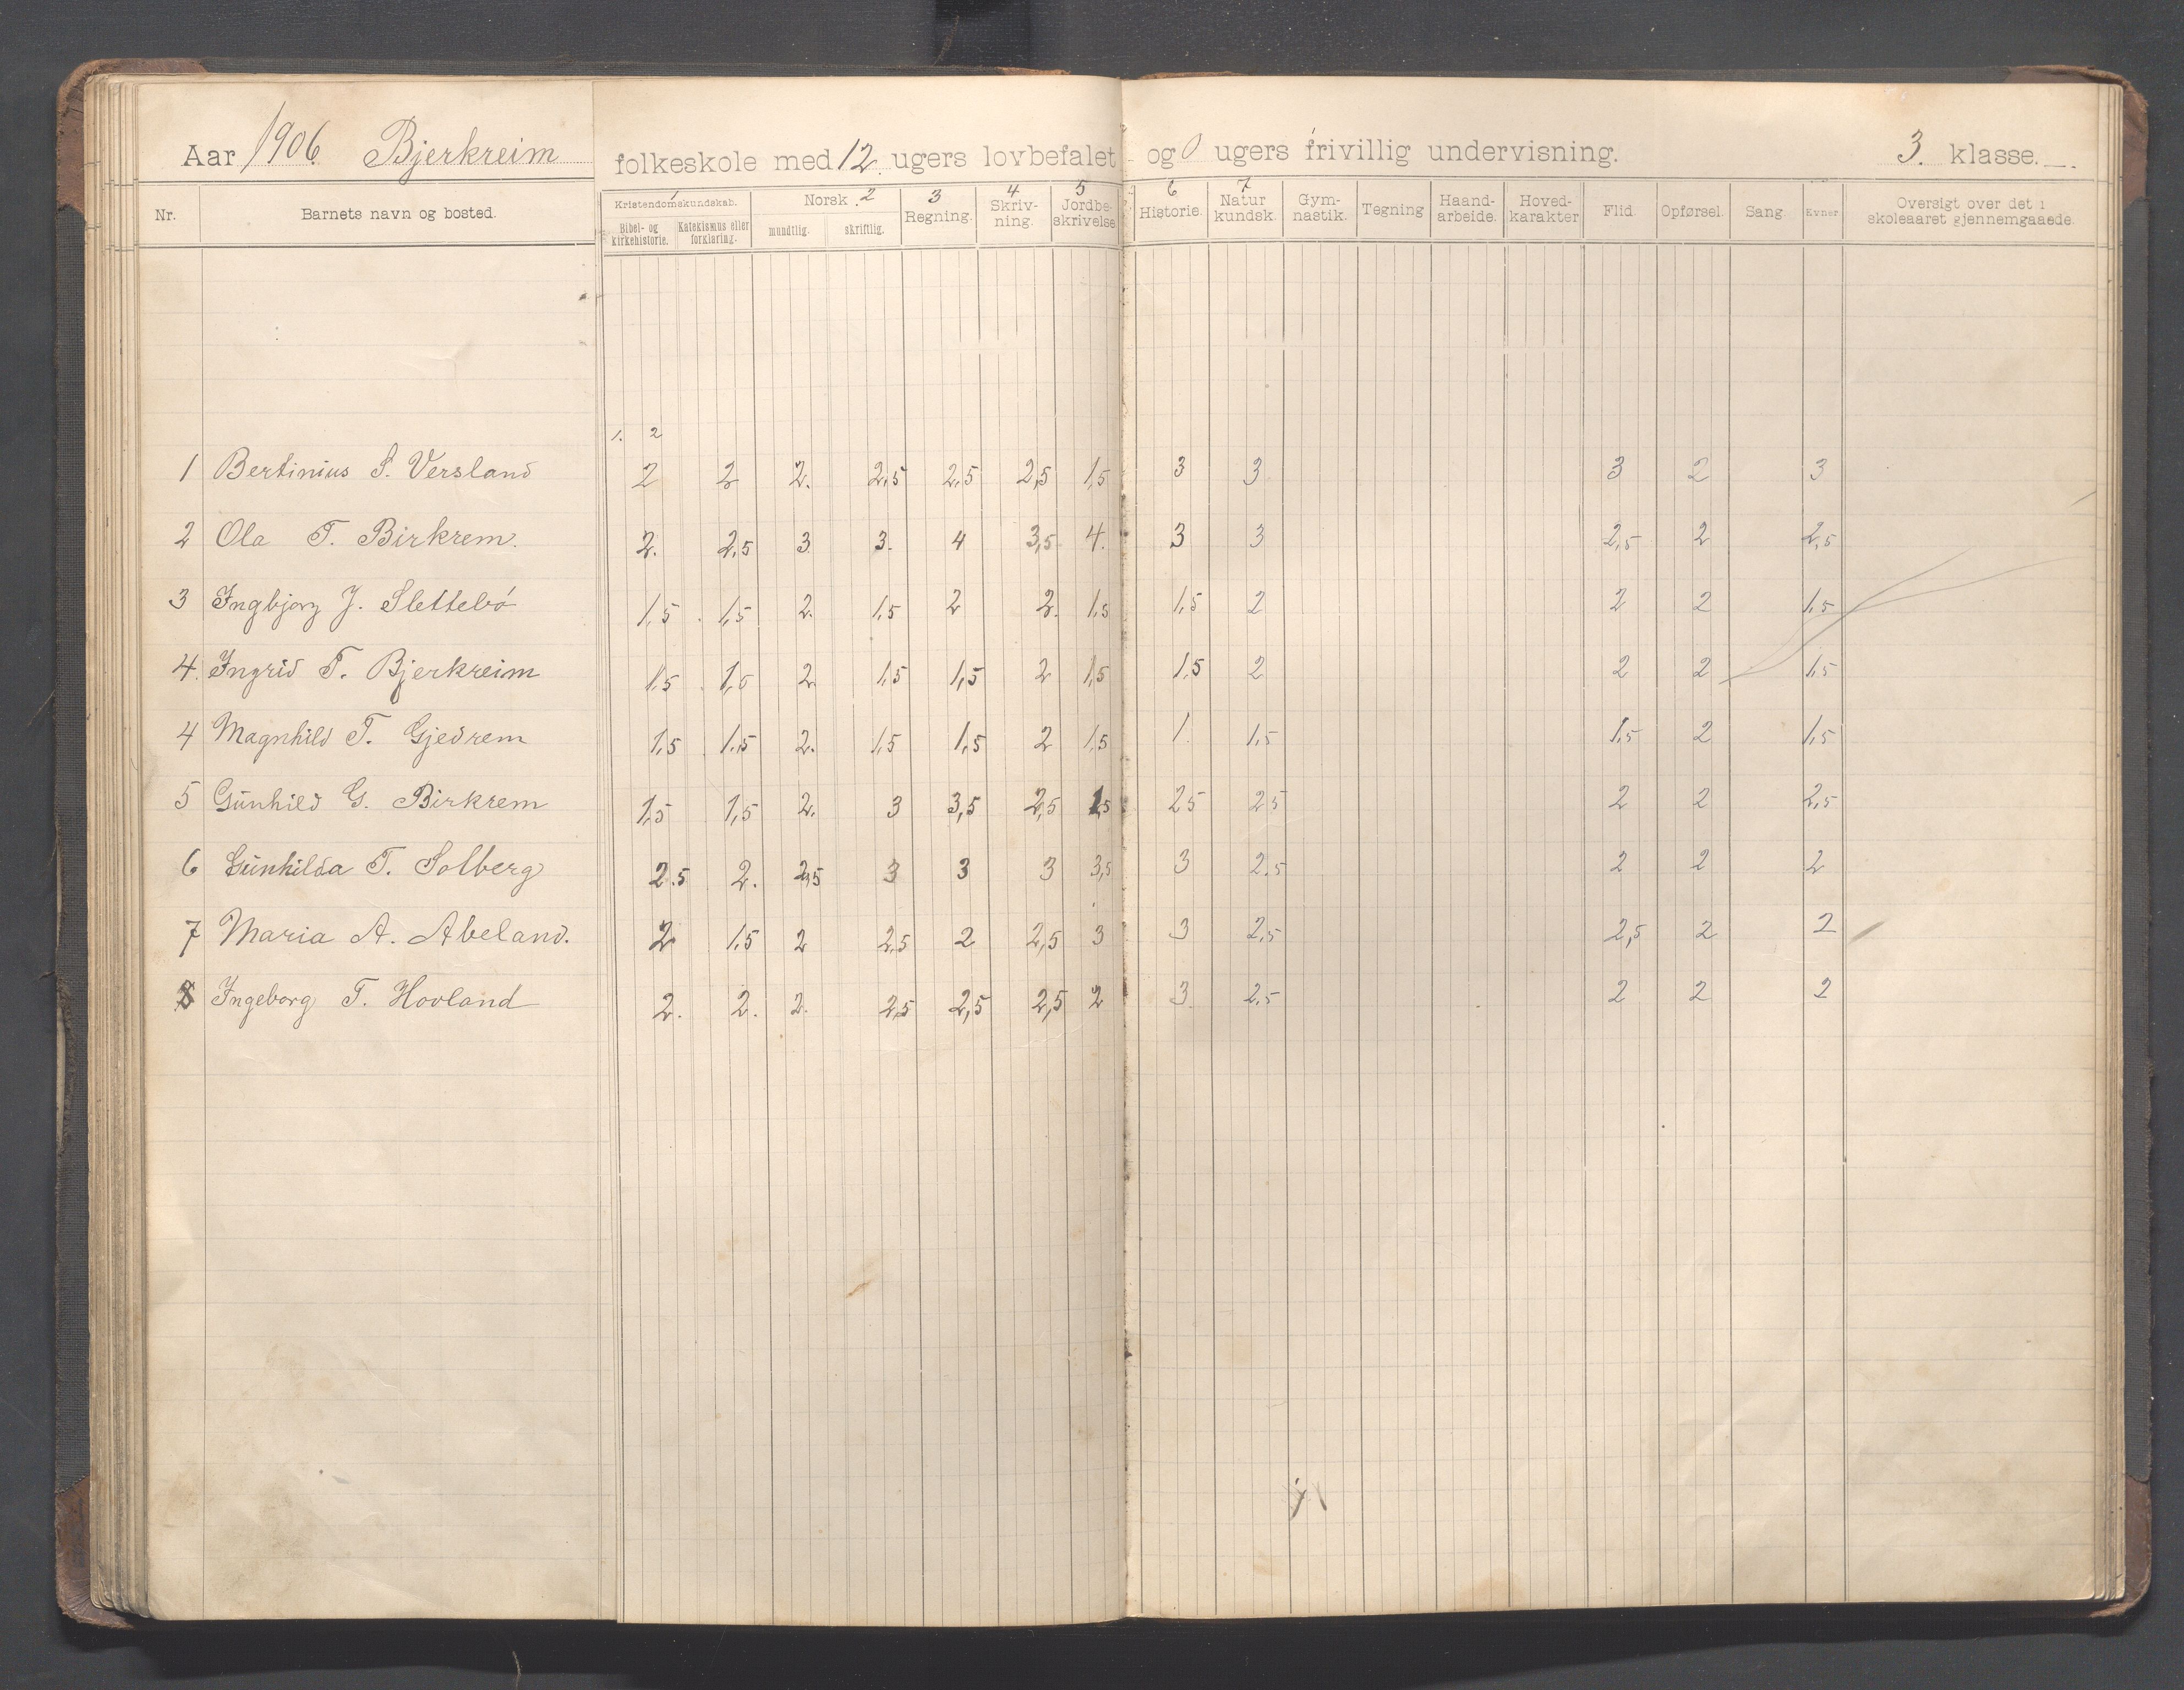 Aar 1906 Bjerkreim folkeskole med 12 ugers lovbefalet og 0 ugers frivillig undervisning. 3. klasse.
1 2 3 4 5 6 7
Nr. Barnets navn og bosted. Kristendomskundskab. Bibel- og kirkehistorie. Katekismus eller forklaring. Norsk. mundtlig. skriftlig. Regning. Skriv-ning. Jordbe-skrivelse Historie. Natur kundsk. Gym-nastik. Tegning Haand-arbeide. Hoved-karakter Flid. Opførsel. Sang. Evner Oversigt over det i skoleaaret gjennemgaaede.
1. 2
1 Bertinius S. Versland 2 2 2. 2,5 2,5 2,5 1,5 3 3 3 2 3
2 Ola T. Birkrem. 2. 2,5 3 3. 4 3,5 4. 3 3 2,5 2 2,5
3 Ingbjorg J. Slettebø 1,5 1,5 2. 1,5 2 2. 1,5 1,5 2 2 2 1,5
4. Ingrid T. Bjerkreim 1,5 1,5 2. 1,5 1,5 2 1,5 1,5 2 2 2 1,5
4 Magnhild T. Gjedrem 1,5 1,5 2. 1,5 1,5 2 1,5 1. 1,5 1,5 2 1,5
5 Gunhild G. Birkrem 1,5 1,5 2. 3 3,5 2,5 1,5 2 5 2 5 2 2 2,5
6 Gunhilda T. Solberg 2.5 2. 2,5 3 3 3 3,5 3 2,5 2 2 2
7 Maria A. Abeland. 2 1,5 2 2,5 2 2,5 3 3 2,5 2,5 2 2
8 Ingeborg T. Hovland 2. 2. 2. 2,5 2,5 2,5 2 3 2,5 2 2 2